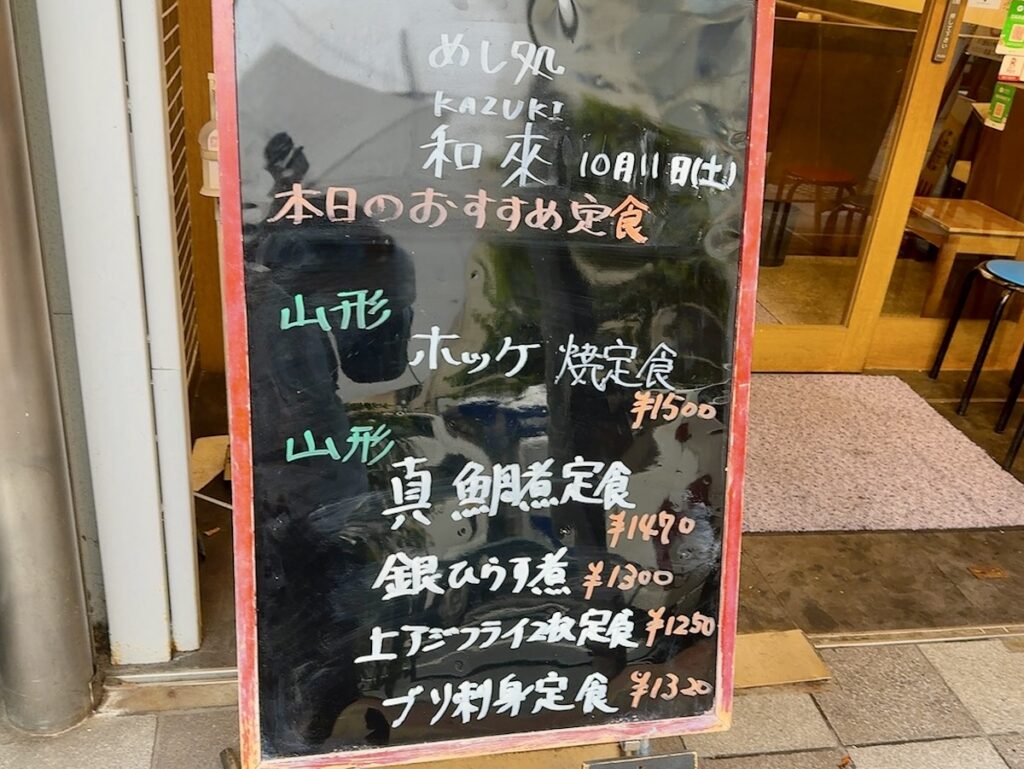 めし処
KAZUKI
和來 10月11日(土)
本日のおすすめ定食
山形
ホッケ 焼定食
¥1500
山形
真鯛煮定食
¥1470
銀ひらす煮 ¥1300
上アジフライ2枚定食 ¥1250
ブリ刺身定食 ¥1320